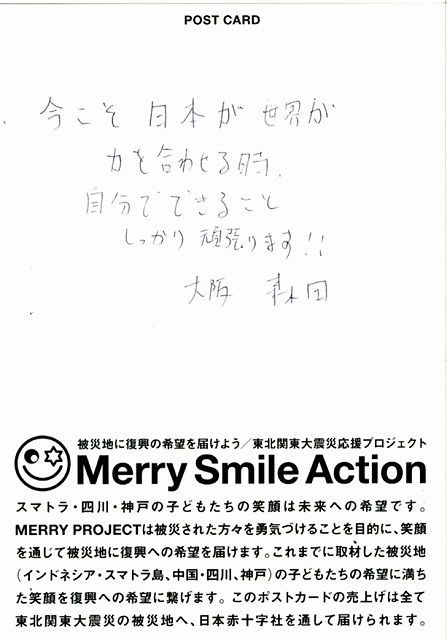 POST CARD
今こそ 日本が 世界が
力を合わせる時、
自分で できること
しっかり 頑張ります!!
大阪
被災地に復興の希望を届けよう／東北関東大震災応援プロジェクト
Merry Smile Action
スマトラ・四川・神戸の子どもたちの笑顔は未来への希望です。
MERRY PROJECTは被災された方々を勇気づけることを目的に、笑顔
を通じて被災地に復興への希望を届けます。これまでに取材した被災地
（インドネシア・スマトラ島、中国・四川、神戸）の子どもたちの希望に満ち
た笑顔を復興への希望に繋げます。このポストカードの売上げは全て
東北関東大震災の被災地へ、日本赤十字社を通して届けられます。